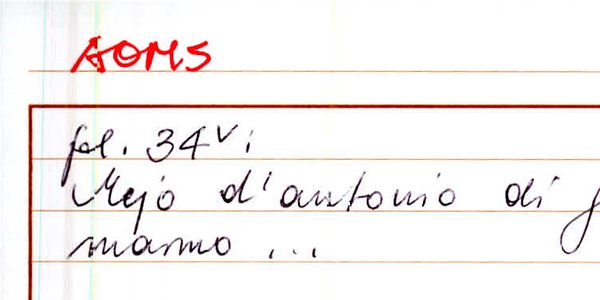 AOMS
fol. 34v:
Mejo d'antonio di
marmo ...